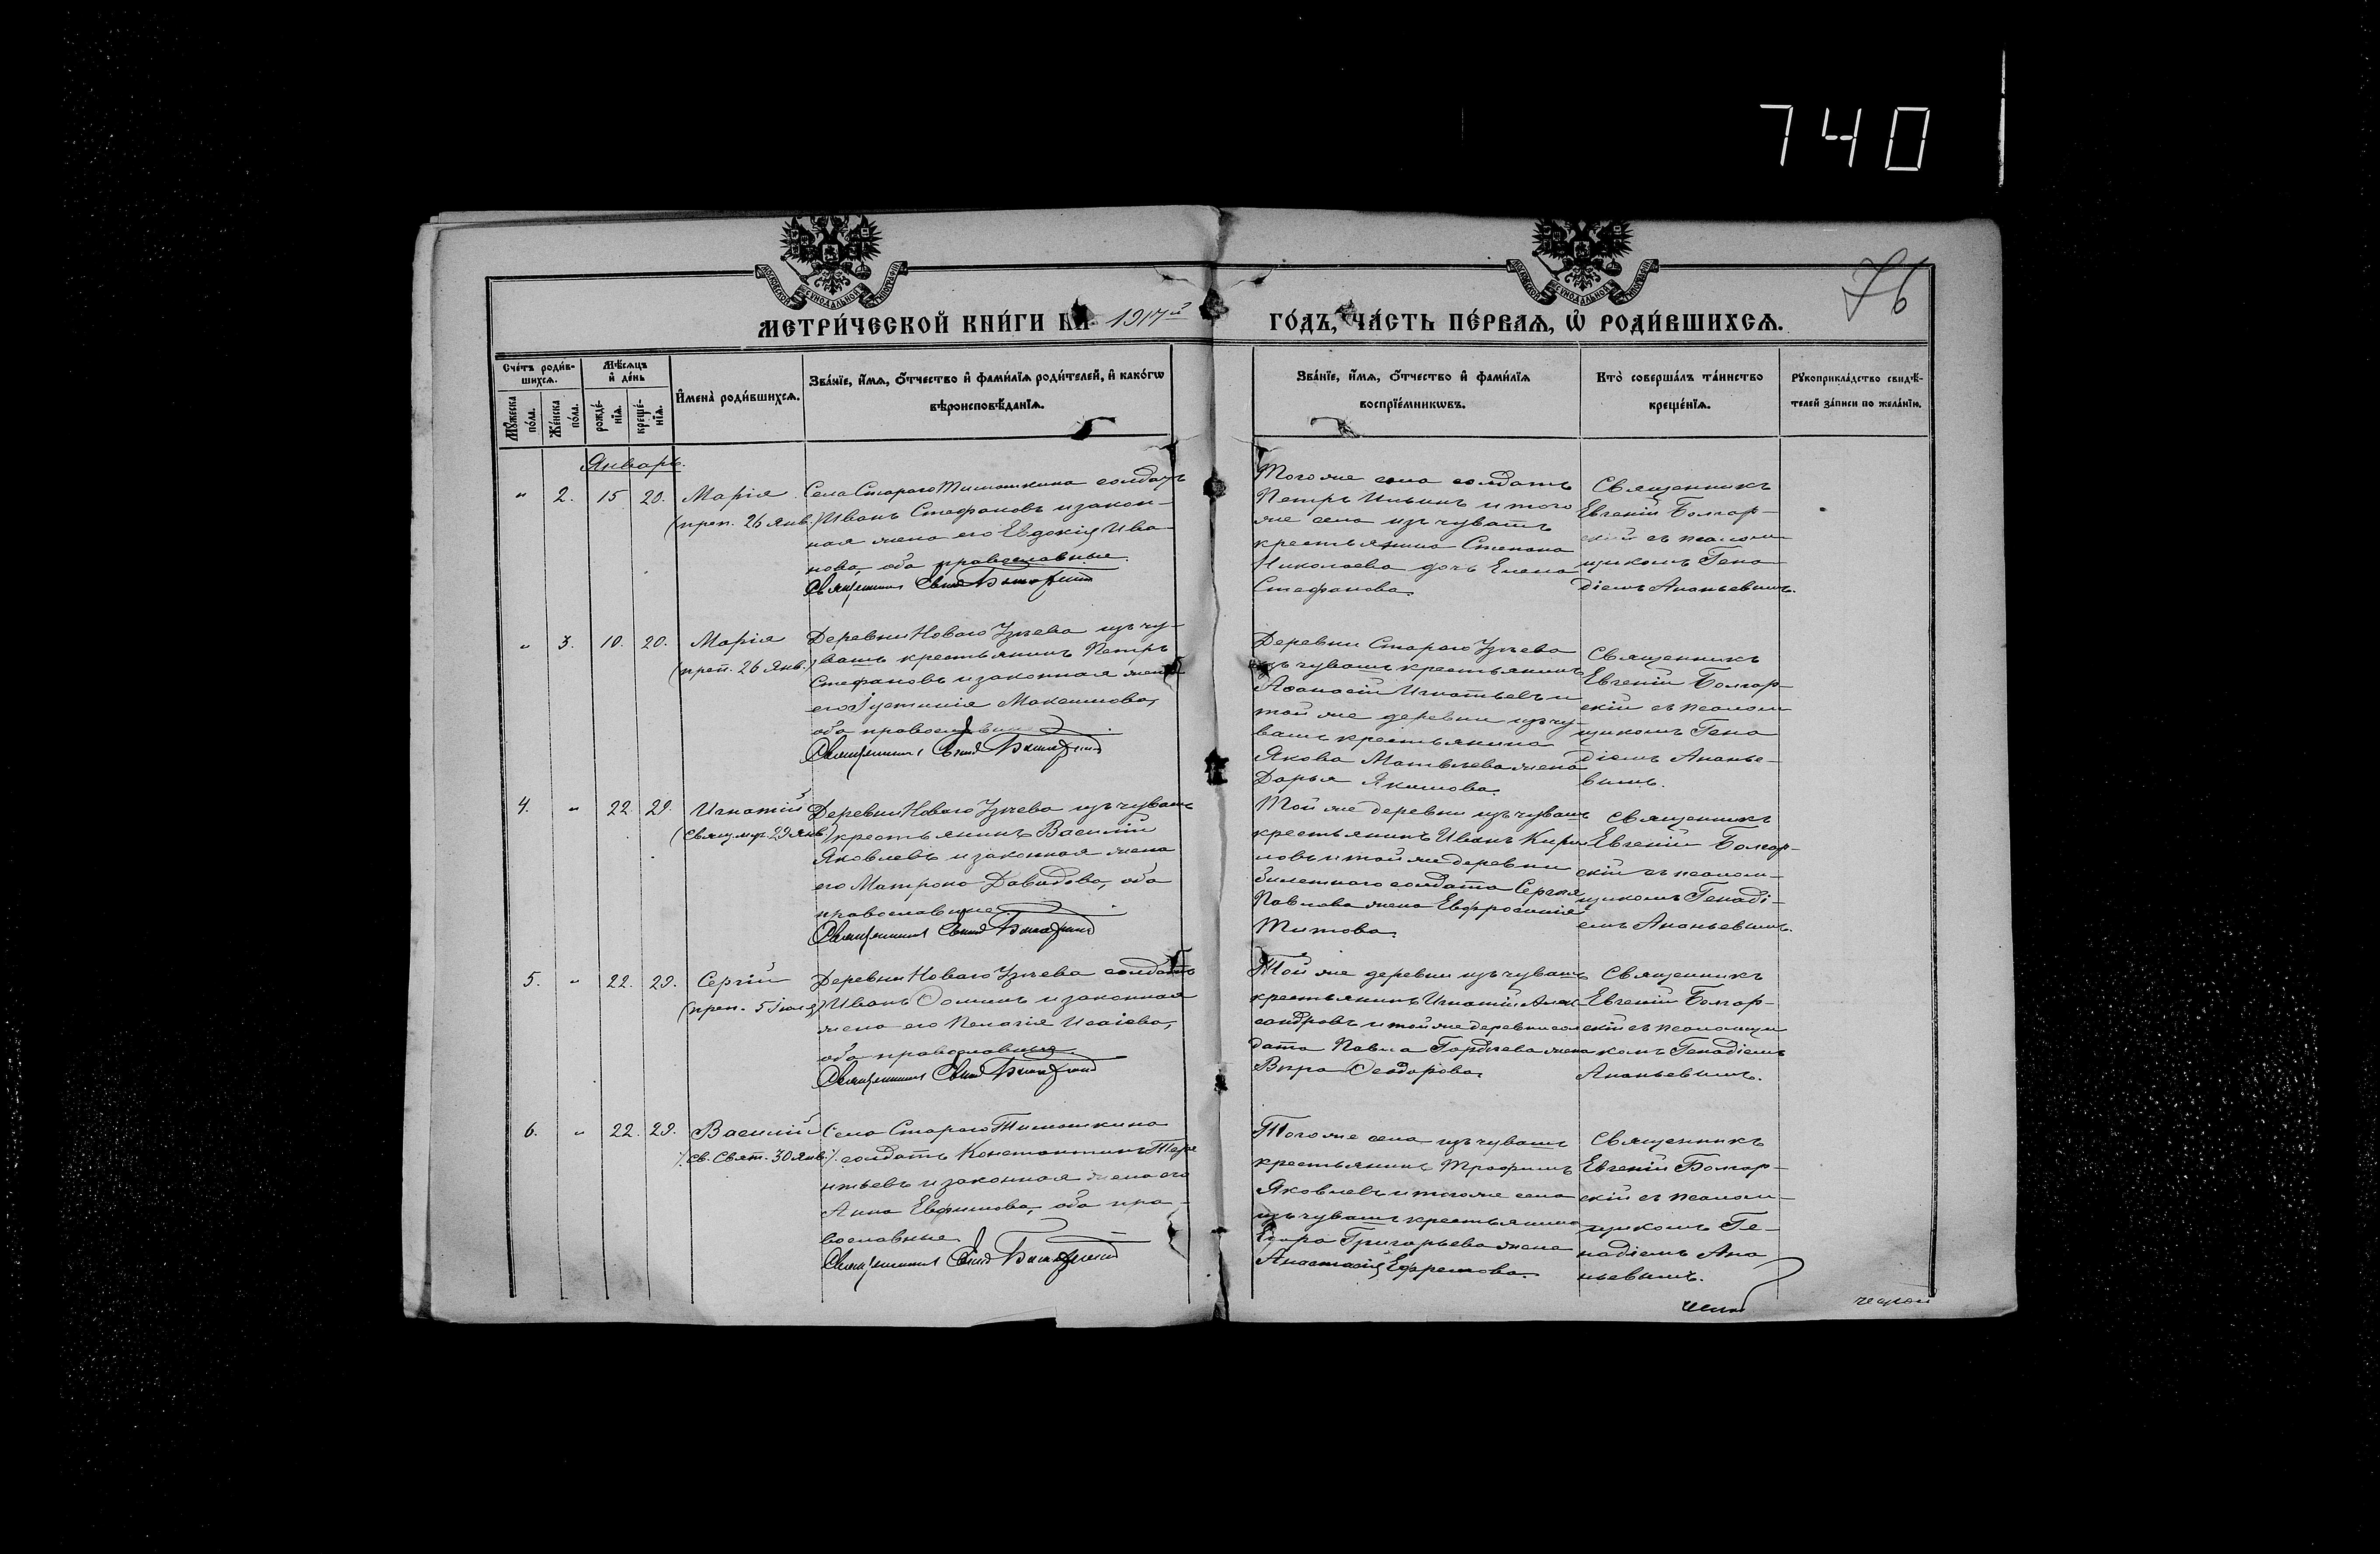 740
76
МОСКОВСКОЙ СѴНОДАЛЬНОЙ ТИПОГРАФІИ
МОСКОВСКОЙ СѴНОДАЛЬНОЙ ТИПОГРАФІИ
МЕТРИ́ЧЕСКОЙ КНИ́ГИ НА 1917й ГО́ДЪ, ЧА́СТЬ ПЕ́РВАѦ, Ѡ҆ РОДИ́ВШИХСѦ.
Сче́тъ роди́в-
шихсѧ.
Мѹ́жеска по́ла.
Же́нска по́ла.
Мѣ́сѧцъ
и҆ де́нь
рожде́-
нїѧ.
креще́-
нїѧ.
И҆мена̀ роди́вшихсѧ.
Зва́нїе, и҆́мѧ, ѻ҆́тчество и҆ фами́лїѧ роди́телей, и҆ како́гѡ
вѣроисповѣ́данїѧ.
Зва́нїе, и҆́мѧ, ѻ҆́тчество и҆ фами́лїѧ
воспрїе́мникѡвъ.
Кто̀ соверша́лъ та́инство
креще́нїѧ.
Рѹкоприкла́дство свидѣ́-
телей за́писи по жела́нїю.
Январь.
" 2. 15 20. Марія
(преп. 26 янв.)
Села Стараго Тимошкина солдатъ
Иванъ Стефановъ и закон-
ная жена его Евдокія Ива-
нова, оба православные.
Священникъ Евгеній Болгарскій
Того же села солдатъ
Петръ Ильинъ и того
же села изъ чувашъ
крестьянина Степана
Николаева дочь Елена
Стефанова.
Священникъ
Евгеній Болгар-
скій съ псалом-
щикомъ Гена
діемъ Ананьевымъ.
" 3. 10. 20. Марія
(преп. 26 Янв.)
Деревни Новаго Узѣева изъ чу-
вашъ крестьянинъ Петръ
Стефановъ и законная жена
его Іустинія Максимова,
оба православные
Священникъ Евгеній Болгарскій
Деревни Стараго Узѣева
изъ чувашъ крестьянинъ
Аѳанасій Игнатьевъ и
той же деревни изъ чу-
вашъ крестьянина
Якова Матвѣева жена
Дарья Якимова.
Священникъ
Евгеній Болгар-
скій съ псалом
щикомъ Гена
діемъ Ананье-
вымъ.
4. " 22. 29. Игнатій
(Свящ.мр. 29 янв.)
Деревни Новаго Узѣева изъ чувашъ
крестьянинъ Василій
Яковлевъ и законная жена
его Матрона Давидова, оба
православные
Священникъ Евгеній Болгарскій
Той же деревни изъ чувашъ
крестьянинъ Иванъ Кирил
ловъ и той же деревни
билетнаго солдата Сергѣя
Павлова жена Евфросинія
Титова.
Священникъ
Евгеній Болгар-
скій съ псалом-
щикомъ Генаді-
емъ Ананьевымъ.
5. " 22. 29. Сергій
(преп. 5 іюля)
Деревни Новаго Узѣева солдатъ
Иванъ Ѳоминъ и законная
жена его Пелагія Исаіева,
оба православные
Священникъ Евгеній Болгарскій
Той же деревни изъ чувашъ
крестьянинъ Игнатій Алек
сандровъ и той же деревни сол
дата Павла Гордѣева жена
Вѣра Ѳеодорова.
Священникъ
Евгеній Болгар-
скій съ псаломщи
комъ Генадіемъ
Ананьевымъ.
6. " 22. 29. Василій
(св. Свят. 30 янв.)
Села Стараго Тимошкина
солдатъ Константинъ Тере
нтьевъ и законная жена его
Анна Евфимова, оба пра-
вославные.
Священникъ Евгеній Болгарскій
Того же села изъ чувашъ
крестьянинъ Трофимъ
Яковлевъ и того же села
изъ чувашъ крестьянина
Егора Григорьева жена
Анастасія Ефремова.
Священникъ
Евгеній Болгар-
скій съ псалом-
щикомъ Ге-
надіемъ Ана
ньевымъ.